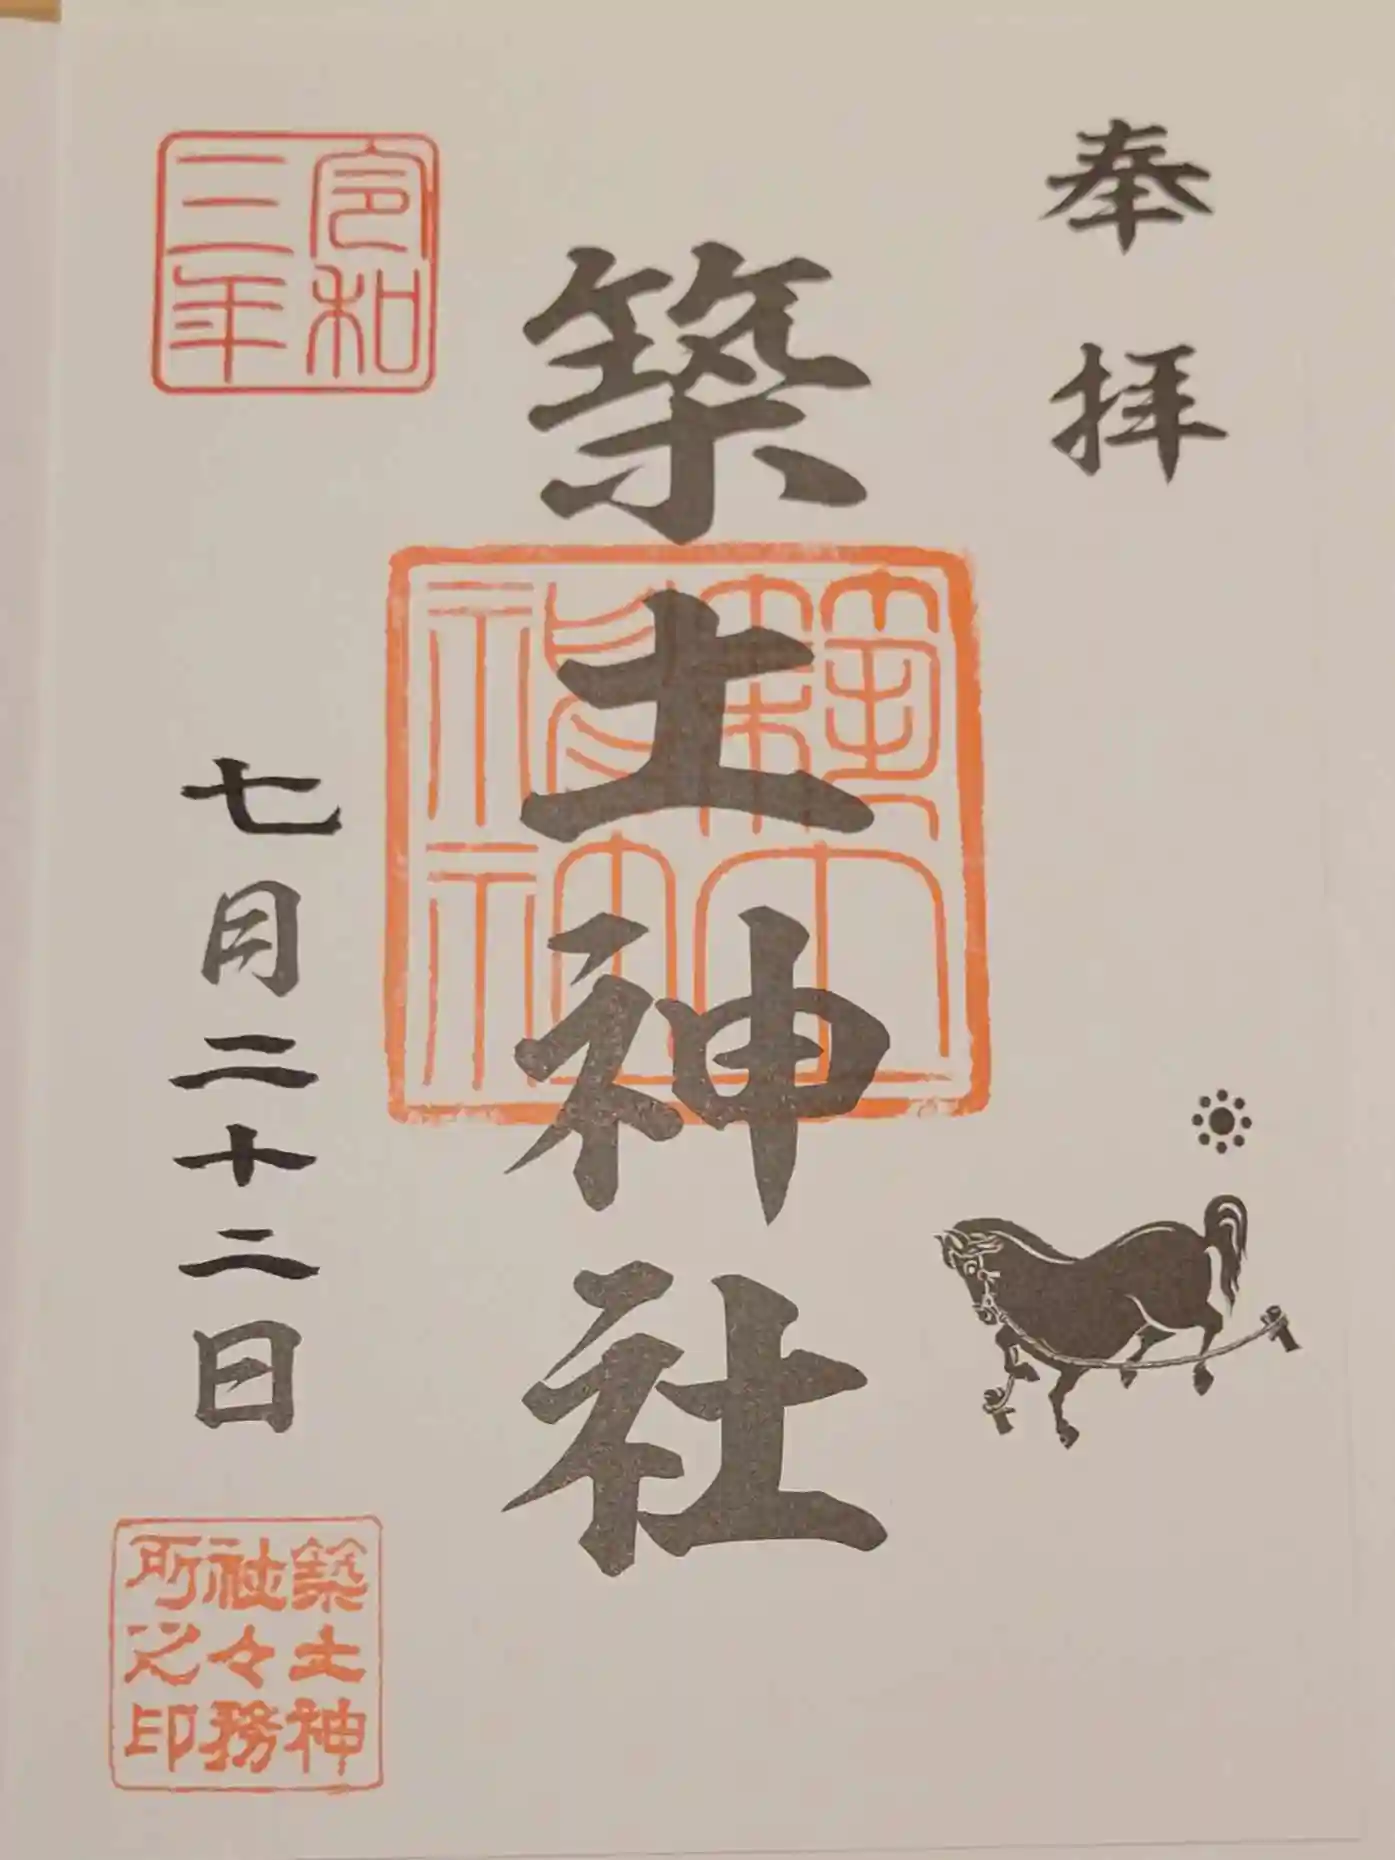 奉拝
築土神社
令和
三年
七月二十二日
築土神
社々務
所之印